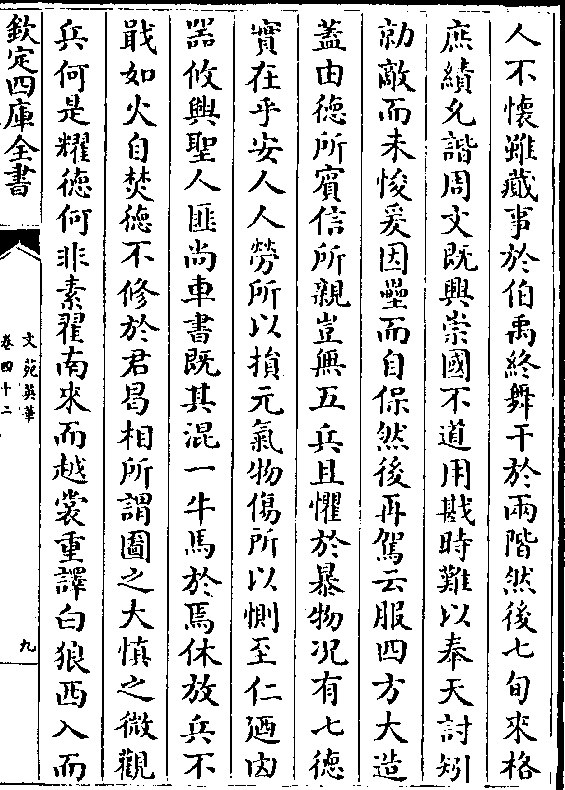 人不懷雖蕆事於伯禹終舞干於兩階然後七旬來格
庶績允諧周文既興崇國不道用戡時難以奉天討矧
勍敵而未悛爰因壘而自保然後再駕云服四方大造
蓋由德所賓信所親豈無五兵且懼於暴物况有七德
實在乎安人人勞所以損元氣物傷所以惻至仁廼由
器攸興聖人匪尚車書既其混一牛馬於焉休放兵不
戢如火自焚德不修於君曷相所謂圖之大慎之微觀
兵何是耀德何非素翟南來而越裳重譯白狼西入而
欽定四庫全書
文苑英華
卷四十二
九